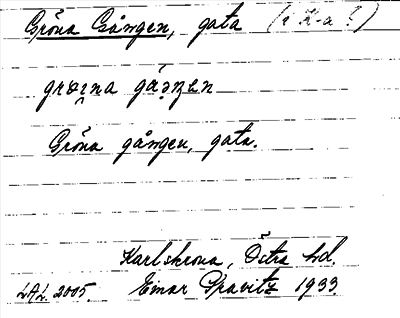 Gröna Gången, gata (i K-a?)
grœna gåŋen
Gröna gången, gata.
Karlskrona, Östra hd.
L.A.L. 2005. Einar Pravitz 1933.